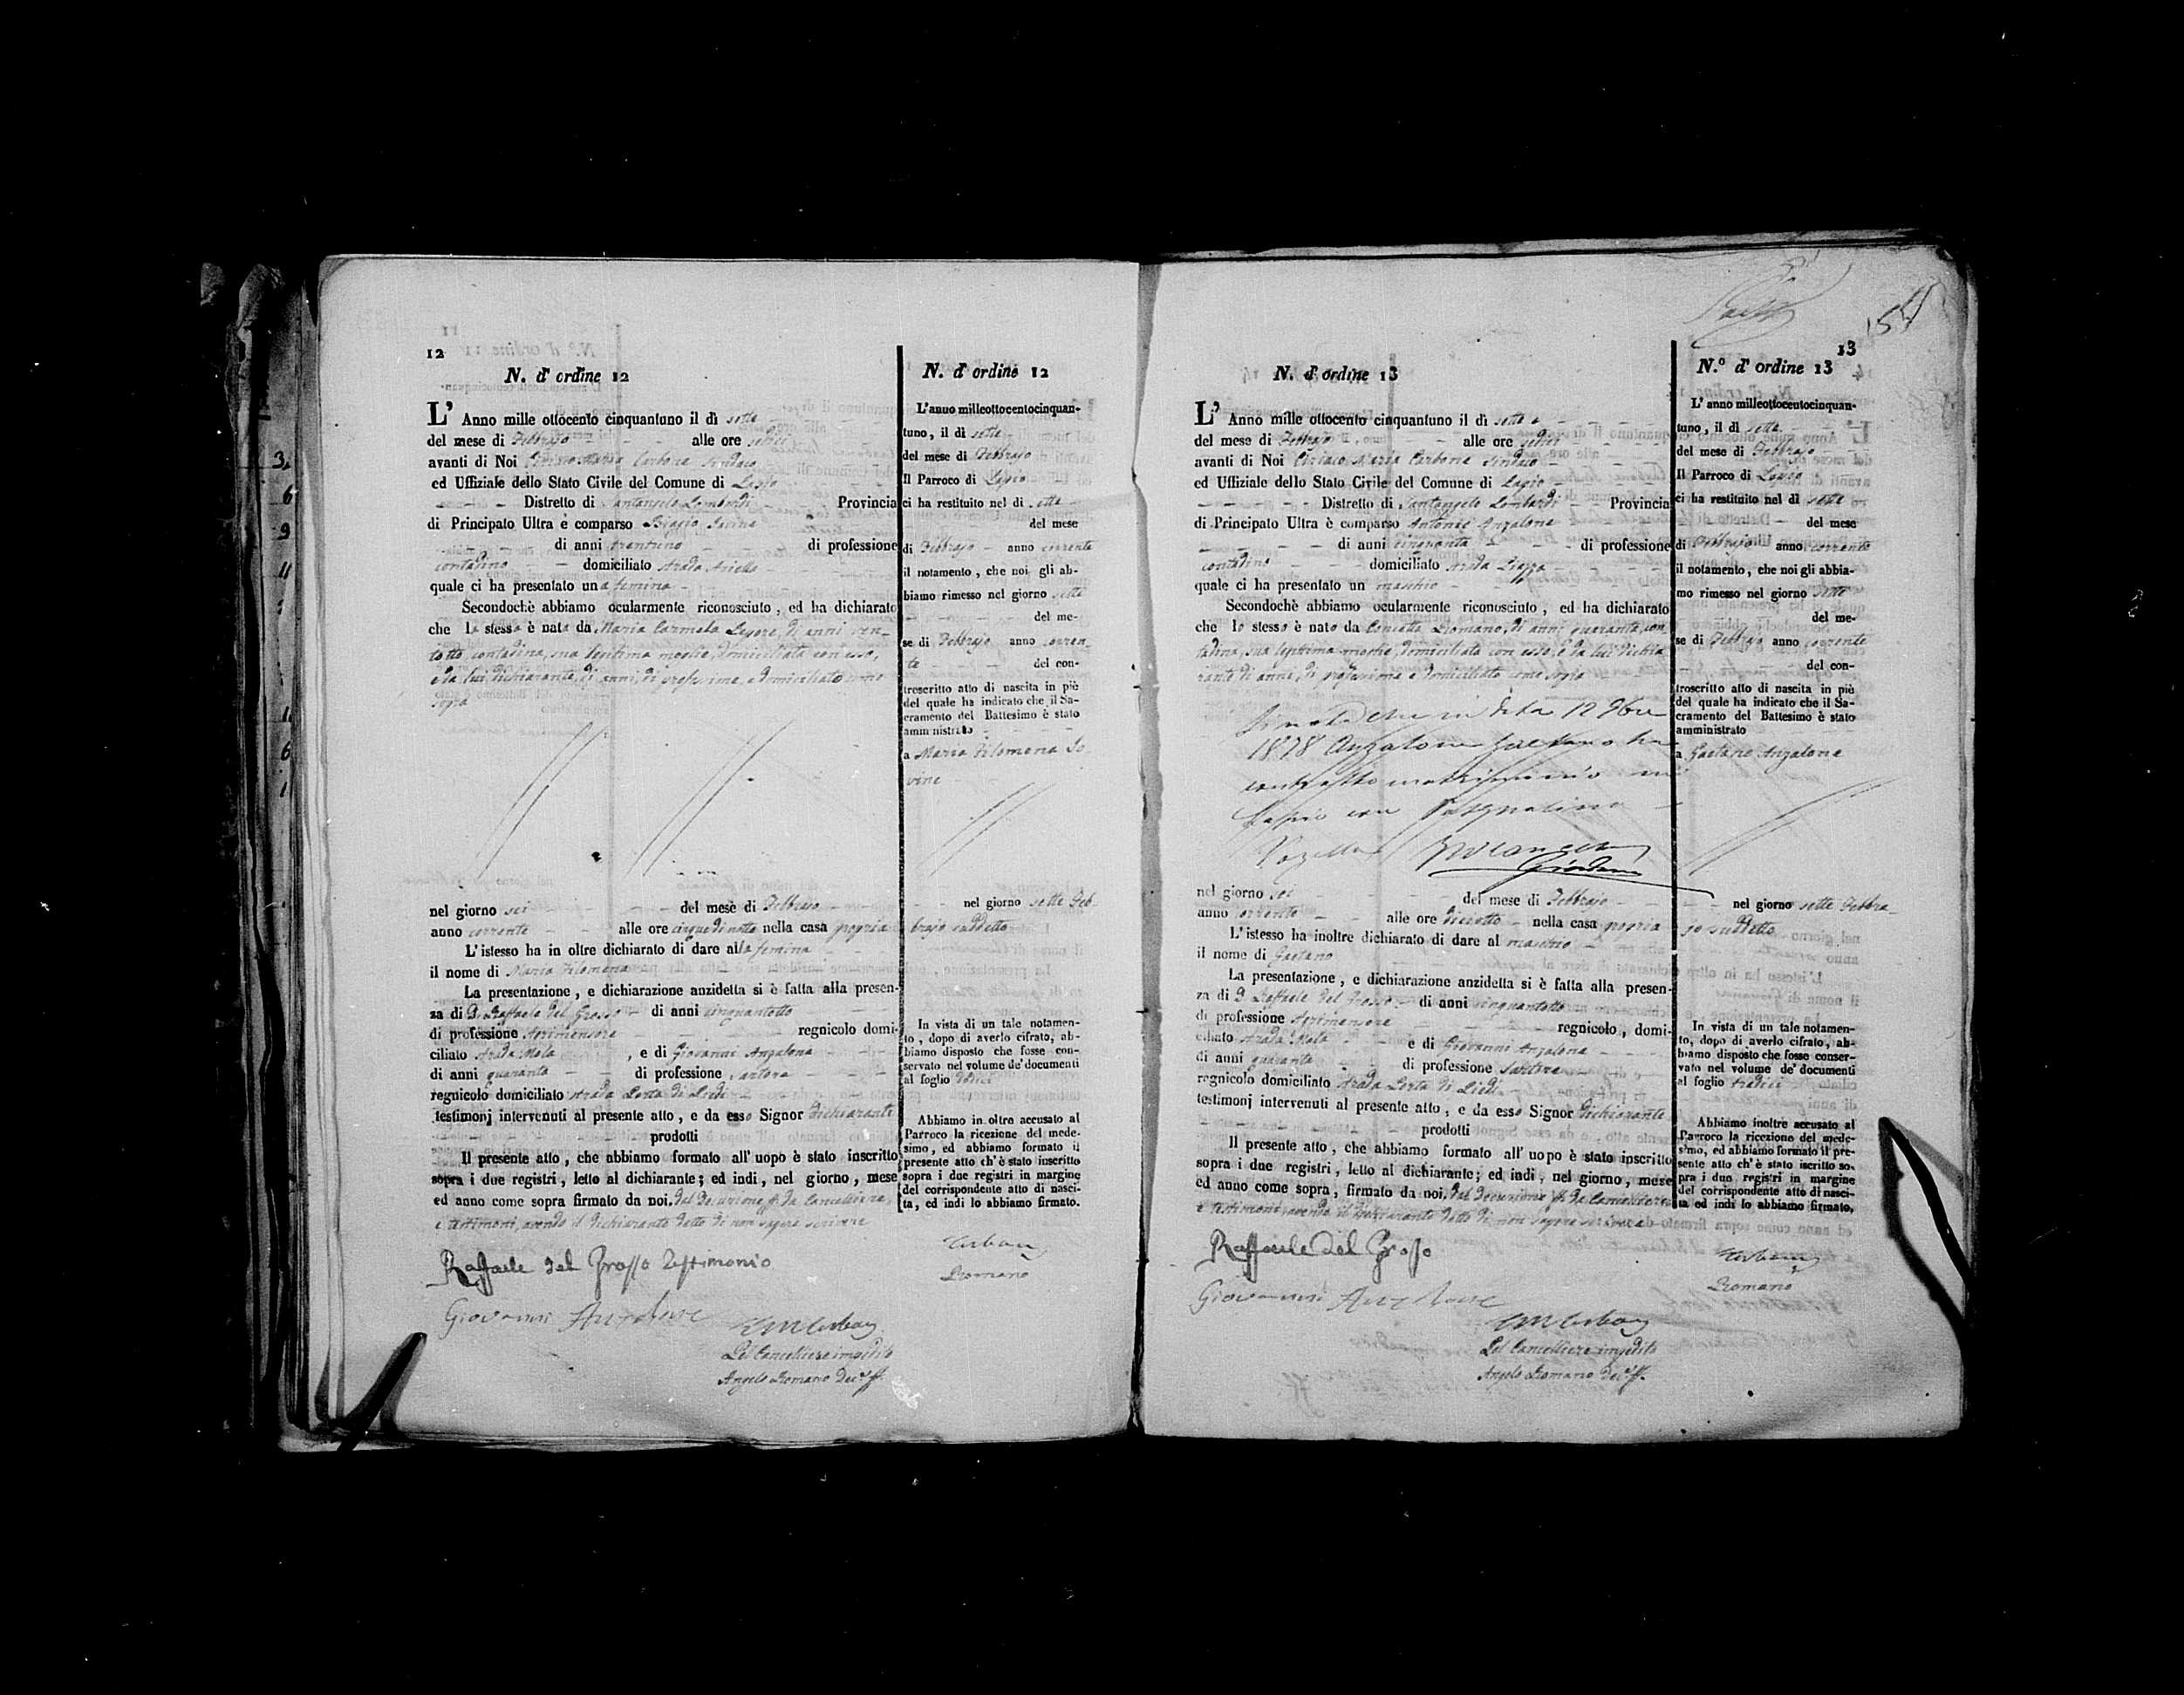 12
N. d' ordine 12
L' Anno mille ottocento cinquantuno il dì sette
del mese di Febbrajo alle ore sedici
avanti di Noi Ciriaco Maria Carbone Sindaco
ed Uffiziale dello Stato Civile del Comune di Lapio
Distretto di Santangelo Lombardi Provincia
di Principato Ultra è comparso Biagio Iovine
di anni trentuno di professione
contadino domiciliato strada Ariella
quale ci ha presentato una femina
Secondochè abbiamo ocularmente riconosciuto, ed ha dichiarato
che la stessa è nata da Maria Carmela Lepore, di anni ven-
totto, contadina, sua legittima moglie, domiciliata con esso,
e da lui dichiarante, di anni, di professione, e domiciliato come
sopra
nel giorno sei del mese di Febbrajo
anno corrente alle ore cinque di notte nella casa propria
L'istesso ha in oltre dichiarato di dare alla femina
il nome di Maria Filomena
La presentazione, e dichiarazione anzidetta si è fatta alla presen-
za di D. Raffaele del Grosso di anni cinquantotto
di professione Agrimensore regnicolo domi-
ciliato strada Mola, e di Giovanni Anzalone
di anni quaranta di professione sartore
regnicolo domiciliato strada Porta di Piedi
testimonj intervenuti al presente atto, e da esso Signor dichiarante
prodotti
Il presente atto, che abbiamo formato all' uopo è stato inscritto
sopra i due registri, letto al dichiarante; ed indi, nel giorno, mese
ed anno come sopra firmato da noi, dal Decurione ff. da Cancelliere,
e testimoni, avendo il dichiarante detto di non sapere scrivere
Raffaele del Grosso Testimonio
Giovanni Anzalone
Pel Cancelliere impedito
Angelo Romano Dec.e ff.
N. d' ordine 12
L'anuo milleottocentocinquan-
tuno, il dì sette
del mese di Febbrajo
Il Parroco di Lapio
ci ha restituito nel di sette
del mese
di Febbrajo anno corrente
il notamento, che noi gli ab-
biamo rimesso nel giorno sette
del me-
se di Febbrajo anno corren-
te del con-
troscritto atto di nascita in piè
del quale ha indicato che il Sa-
cramento del Battesimo è stato
amministrato
a Maria Filomena Io-
vine
nel giorno sette Feb-
brajo suddetto
In vista di un tale notamen-
to, dopo di averlo cifrato, ab-
biamo disposto che fosse con-
servato nel volume de' documenti
al foglio dodici
Abbiamo in oltre accusato al
Parroco la ricezione del mede-
simo, ed abbiamo formato il
presente atto ch'è stato inscritto
sopra i due registri in margine
del corrispondente atto di nasci-
ta, ed indi lo abbiamo firmato.
Romano
13
N. d' ordine 13
L' Anno mille ottocento cinquantuno il dì sette
del mese di Febbrajo alle ore sedici
avanti di Noi Ciriaco Maria Carbone Sindaco
ed Uffiziale dello Stato Civile del Comune di Lapio
Distretto di Santangelo Lombardi Provincia
di Principato Ultra è comparso Antonio Anzalone
di anni cinquanta di professione
contadino domiciliato strada Piazza
quale ci ha presentato un maschio
Secondochè abbiamo ocularmente riconosciuto, ed ha dichiarato
che lo stesso è nato da Concetta Romano, di anni quaranta, con-
tadina, sua legittima moglie, domiciliata con esso, e da lui dichia-
rante di anni, di professione e domiciliato come sopra
Si nota che in data 12 9bre
1878 Anzalone Gaetano ha
contratto matrimonio in
Lapio con Pasqualina
Giordano
nel giorno sei del mese di Febbrajo
anno corrente alle ore diciotto nella casa propria
L'istesso ha inoltre dichiarato di dare al maschio
il nome di Gaetano
La presentazione, e dichiarazione anzidetta si è fatta alla presen-
za di D. Raffaele del Grosso di anni cinquantotto
di professione Agrimensore regnicolo, domi-
ciliato strada Mola e di Giovanni Anzalone
di anni quaranta di professione Sartore
regnicolo domiciliato strada Porta di Piedi
testimonj intervenuti al presente atto, e da esso Signor dichiarante
prodotti
Il presente atto, che abbiamo formato all' uopo è stato inscritto
sopra i due registri, letto al dichiarante; ed indi, nel giorno, mese
ed anno come sopra, firmato da noi, dal Decurione ff. da Cancelliere
e testimoni, avendo il dichiarante detto di non sapere scrivere
Raffaele del Grosso
Giovanni Anzalone
Pel Cancelliere impedito
Angelo Romano Dec.e ff.
N.o d' ordine 13
L' anno milleottocentocinquan-
tuno, il dì sette
del mese di Febbrajo
Il Parroco di Lapio
ci ha restituito nel dì sette
del mese
di Febbrajo anno corrente
il notamento, che noi gli abbia-
mo rimesso nel giorno sette
del me-
se di Febbrajo anno corrente
del con-
troscritto atto di nascita in piè
del quale ha indicato che il Sa-
cramento del Battesimo è stato
amministrato
a Gaetano Anzalone
nel giorno sette Febbra-
jo suddetto
In vista di un tale notamen-
to, dopo di averlo cifrato, ab-
biamo disposto che fosse conser-
vato nel volume de' documenti
al foglio tredici
Abbiamo inoltre accusato al
Parroco la ricezione del mede-
simo, ed abbiamo formato il pre-
sente atto ch'è stato iscritto so-
pra i due registri in margine
del corrispondente atto di nasci-
ta ed indi lo abbiamo firmato.
Romano